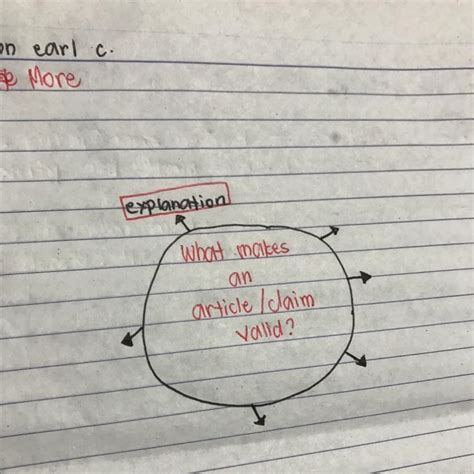 on earl c.
More
explanation
What makes
an
article/claim
valid?